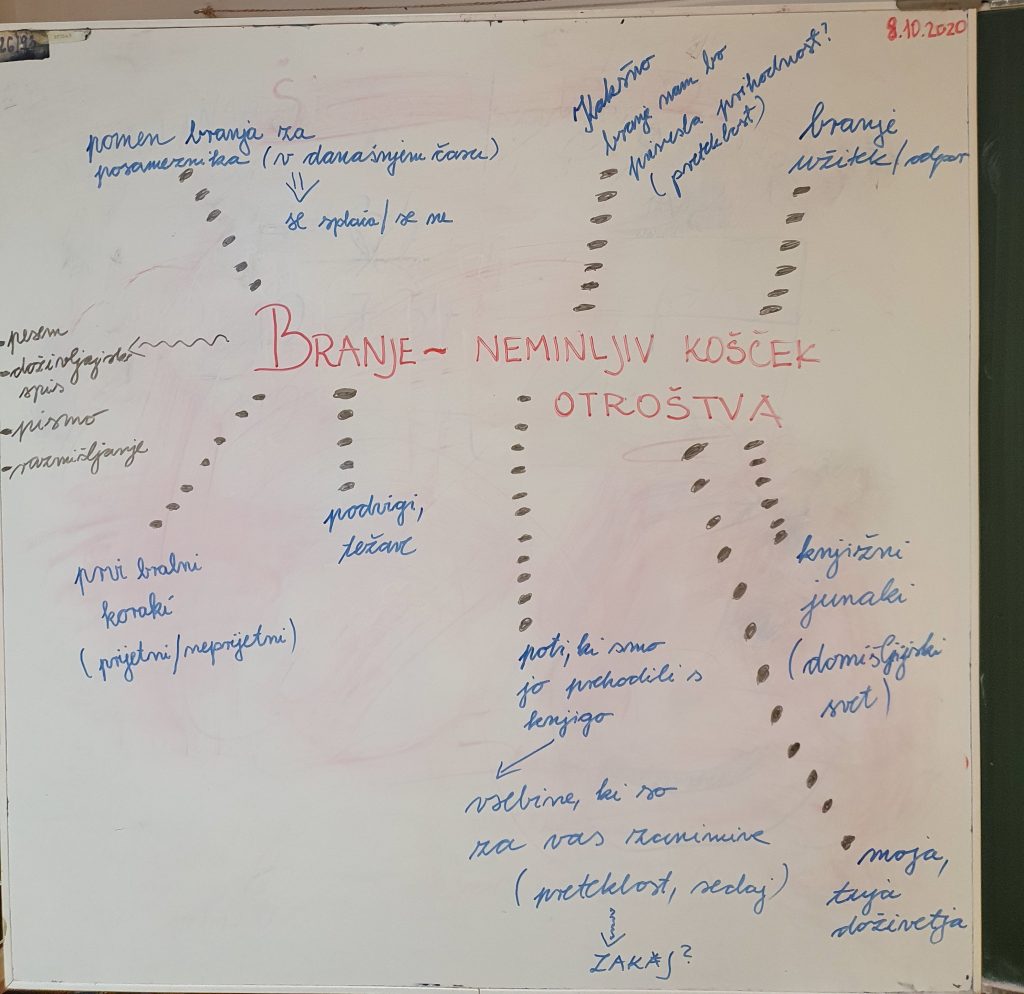 8.10.2020
pomen branja za
posameznika (v današnjem času)
se splača/se ne
Kakšno
branje nam bo
prinesla prihodnost?
(preteklost)
branje
užitek/odpor
BRANJE - NEMINLJIV KOŠČEK
OTROŠTVA
- pesem
- doživljajski
spis
- pismo
- razmišljanje
prvi bralni
koraki
(prijetni/neprijetni)
podvigi,
težave
poti, ki smo
jo prehodili s
knjigo
vsebine, ki so
za vas zanimive
(preteklost, sedaj)
ZAKAJ?
knjižni
junaki
(domišljijski
svet)
moja,
tuja
doživetja